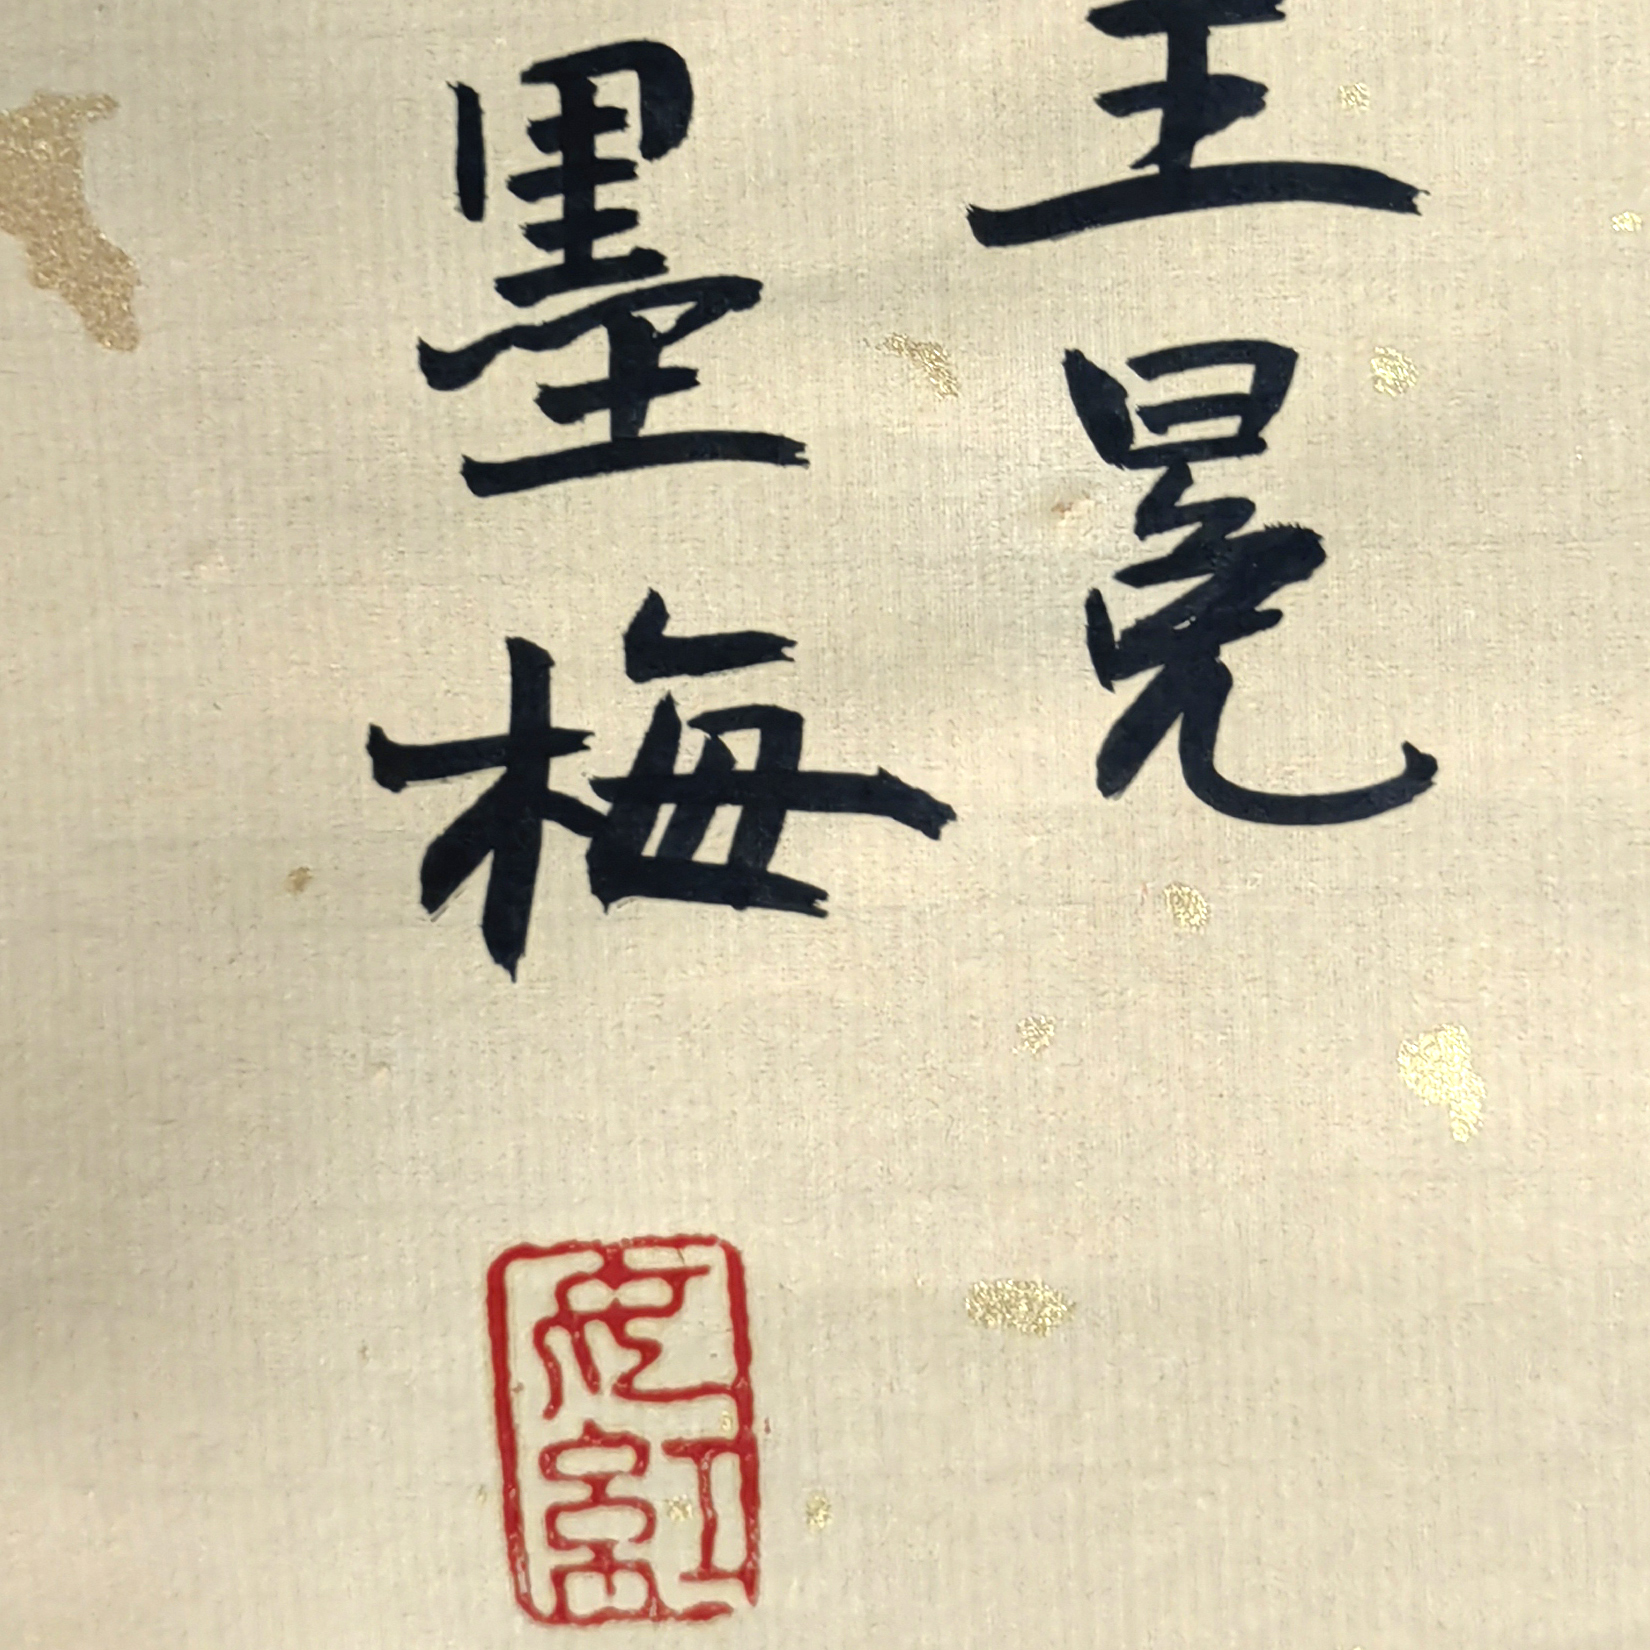 王冕
墨梅